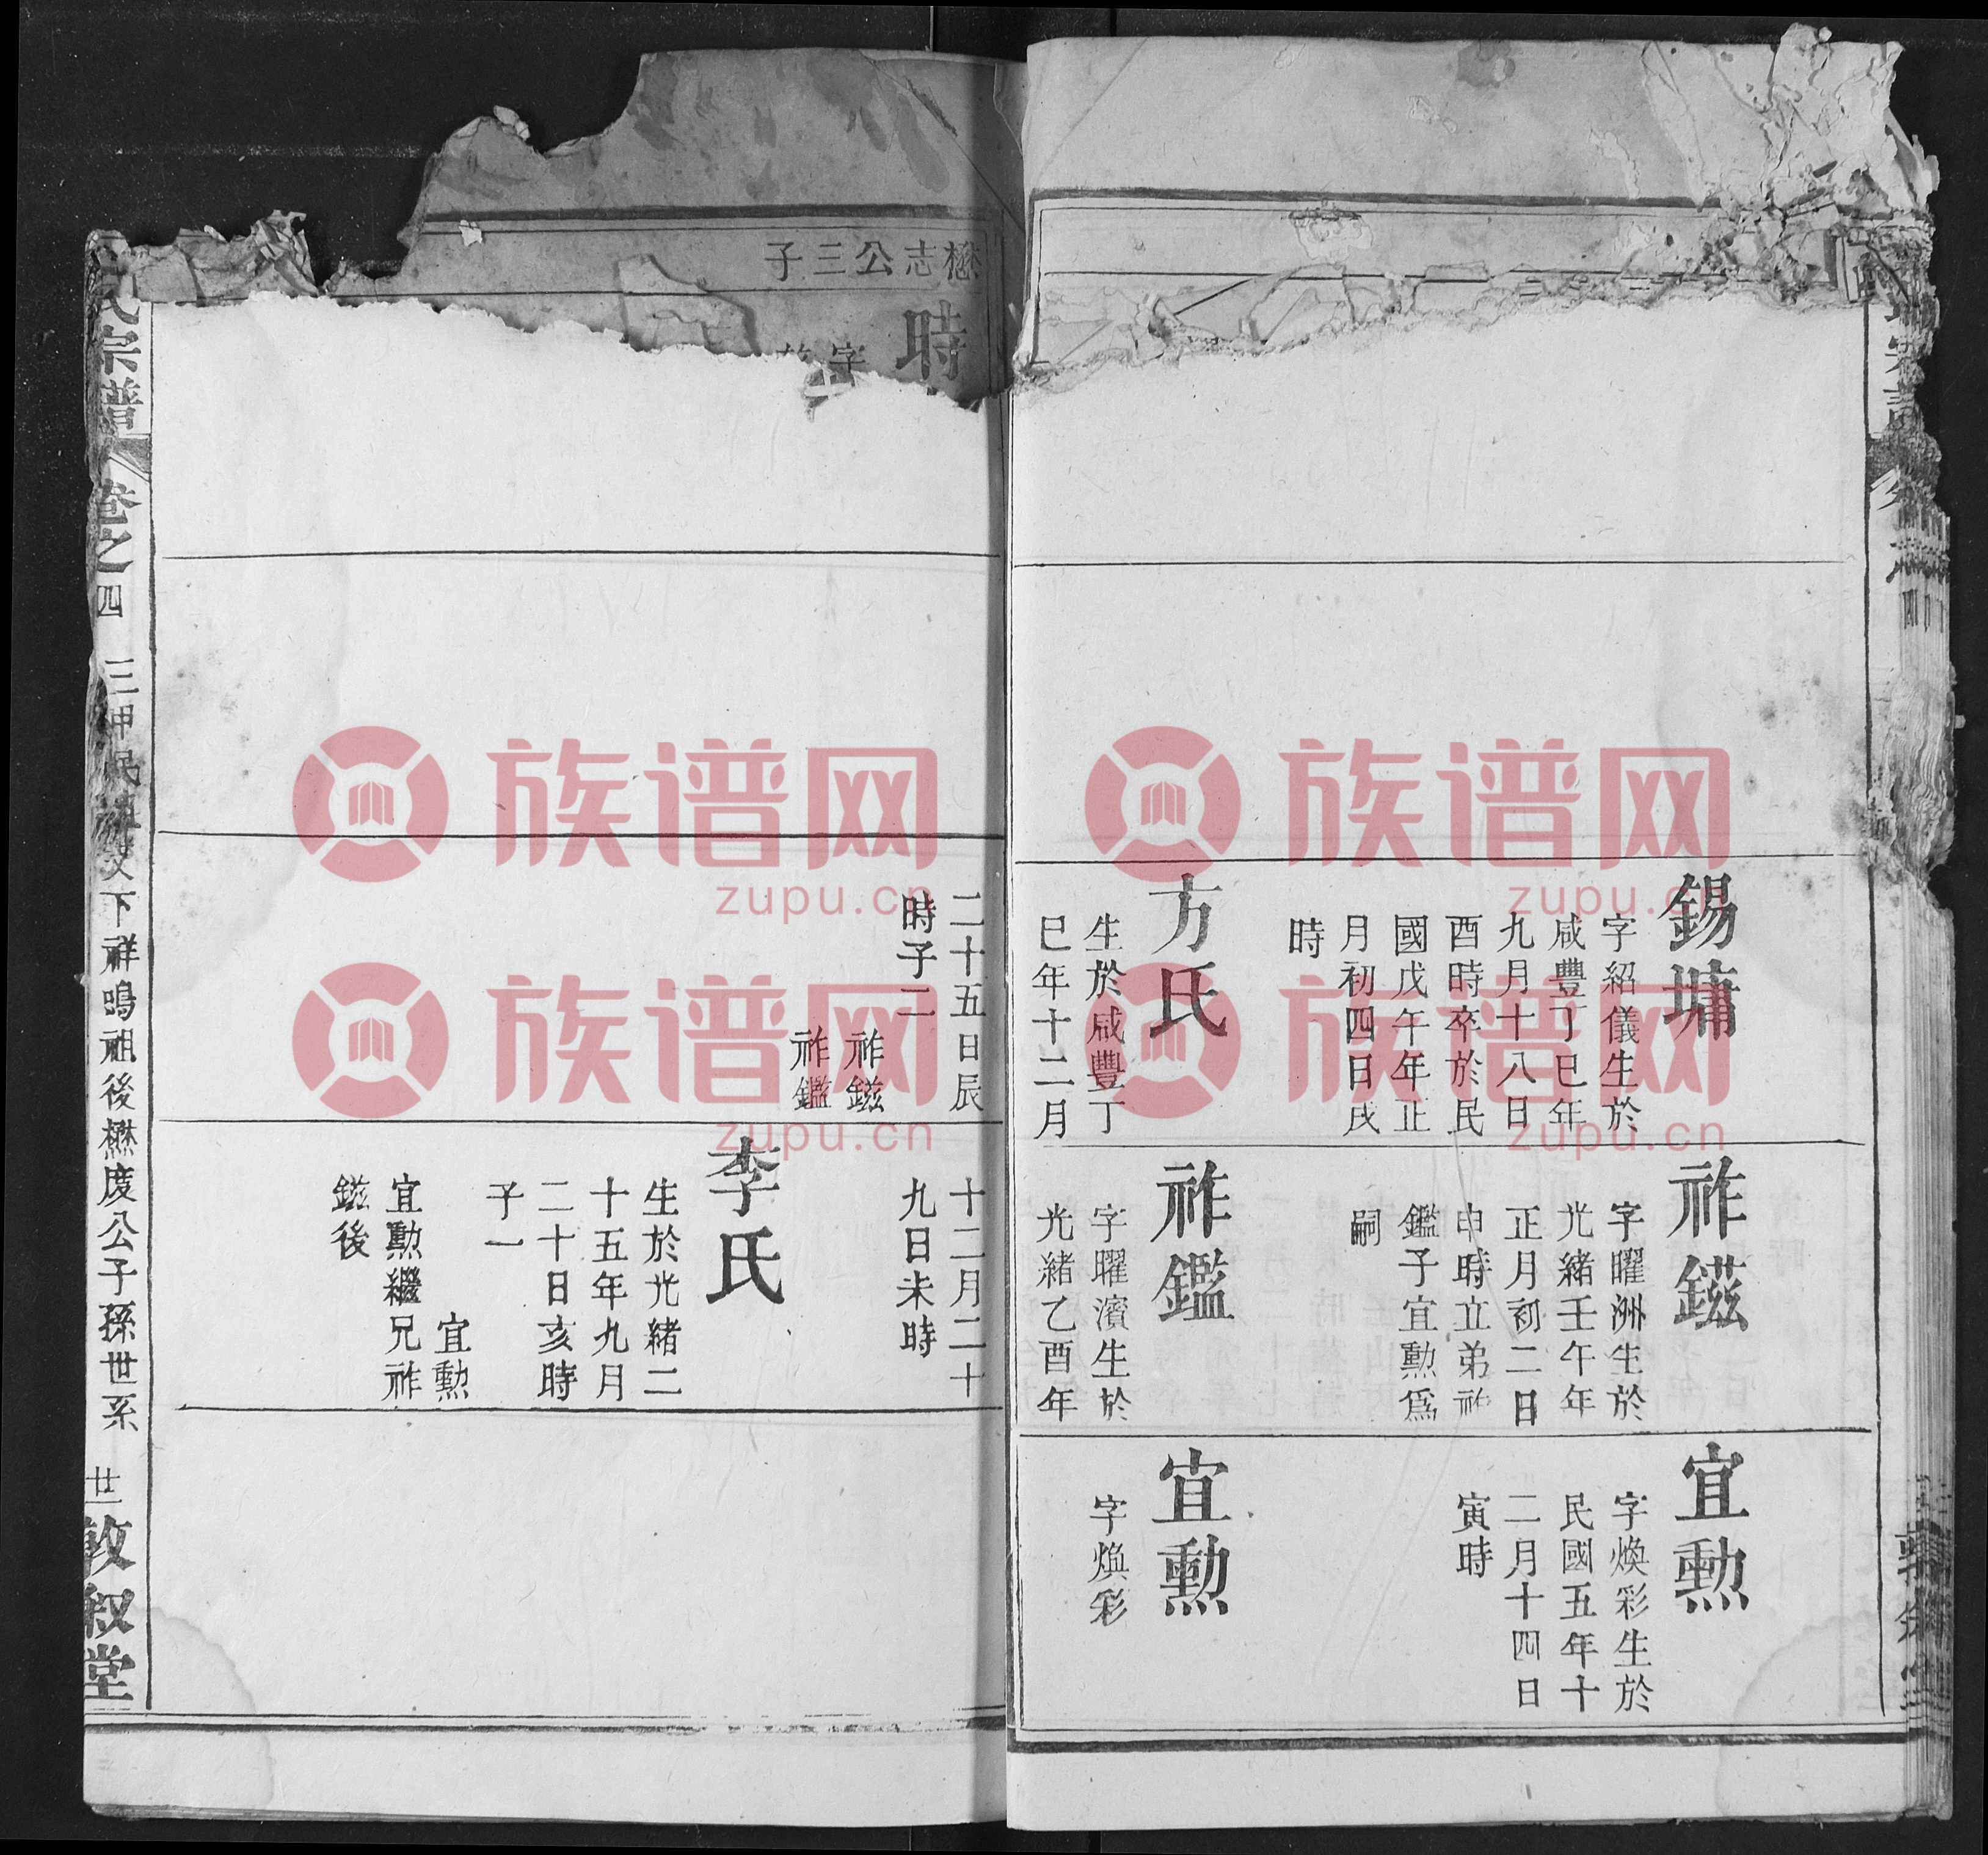 錫墉
字紹儀生於
咸豐丁巳年
九月十八日
酉時卒於民
國戊午年正
月初四日戌
時
方氏
生於咸豐丁
巳年十二月
祚鎡
字曜洲生於
光緒壬午年
正月初二日
申時立弟祚
鑑子宜勲爲
嗣
祚鑑
字曜濱生於
光緒乙酉年
宜勲
字煥彩生於
民國五年十
二月十四日
寅時
宜勲
字煥彩
懋志公三子
時
字
二十五日辰
時子二
祚鎡
祚鑑
十二月二十
九日未時
李氏
生於光緒二
十五年九月
二十日亥時
子一
宜勲
宜勲繼兄祚
鎡後
氏宗譜
卷之四
三甲民 下祥鳴祖後懋度公子孫世系
廿一
敦叙堂
族谱网
zupu.cn
族谱网
zupu.cn
族谱网
zupu.cn
族谱网
zupu.cn